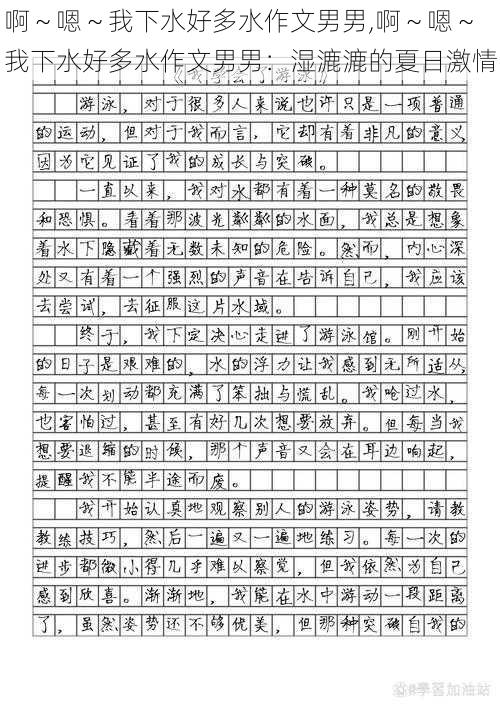 啊～嗯～我下水好多水作文男男,啊～嗯～
我下水好多水作文男男：湿漉漉的夏日激情
《我学会了游泳》
游泳，对于很多人来说也许只是一项普通
的运动，但对于我而言，它却有着非凡的意义，
因为它见证了我的成长与突破。
一直以来，我对水都有着一种莫名的敬畏
和恐惧。看着那波光粼粼的水面，我总是想象
着水下隐藏着无数未知的危险。然而，内心深
处又有着一个强烈的声音在告诉自己，我应该
去尝试，去征服这片水域。
终于，我下定决心走进了游泳馆。刚开始
的日子是艰难的，水的浮力让我感到无所适从，
每一次划动都充满了笨拙与慌乱。我呛过水，
也害怕过，甚至有好几次想要放弃。但每当我
想要退缩的时候，那个声音又会在耳边响起，
提醒我不能半途而废。
我开始认真地观察别人的游泳姿势，请教
教练技巧，然后一遍又一遍地练习。每一次的
进步都微小得几乎难以察觉，但我依然为自己
感到欣喜。渐渐地，我能在水中游动一段距离
了，虽然姿势还不够优美，但那种突破自我的
學習加油站